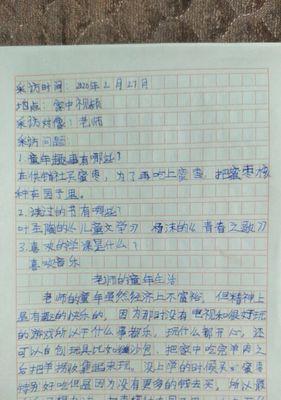 采访时间：2020年2月27日
地点：家中视频
采访对像：老师
采访问题
1.童年趣事有哪些？
在供销社买蜜枣，为了再吃上蜜枣，把蜜枣核
种在园子里。
2.读过的书有哪些？
叶圣陶的《儿童文学》 杨沫的《青春之歌》
3.喜欢的学课是什么？
喜欢音乐
老师的童年生活
老师的童年虽然经济上不富裕，但精神上
是有趣的快乐的，因为那时没有电视和很好玩
的游戏所以干什么事都乐，玩什么都开心，还
可以自创玩具比如沙包，把家中吃完羊肉之
后把羊拐收集起来玩。没上学的时候买的蜜枣
特别好吃但是因为没有更多的钱去买，所以最